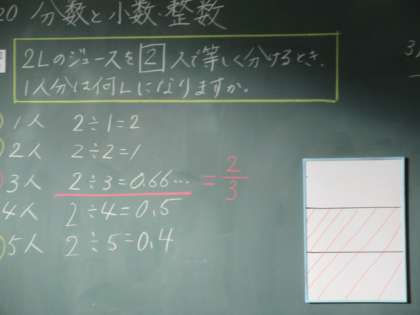 20 分数と小数、整数
2Lのジュースを2人で等しく分けるとき、
1人分は何Lになりますか。
1人 2÷1=2
2人 2÷2=1
3人 2÷3=0.66… = 2/3
4人 2÷4=0.5
5人 2÷5=0.4